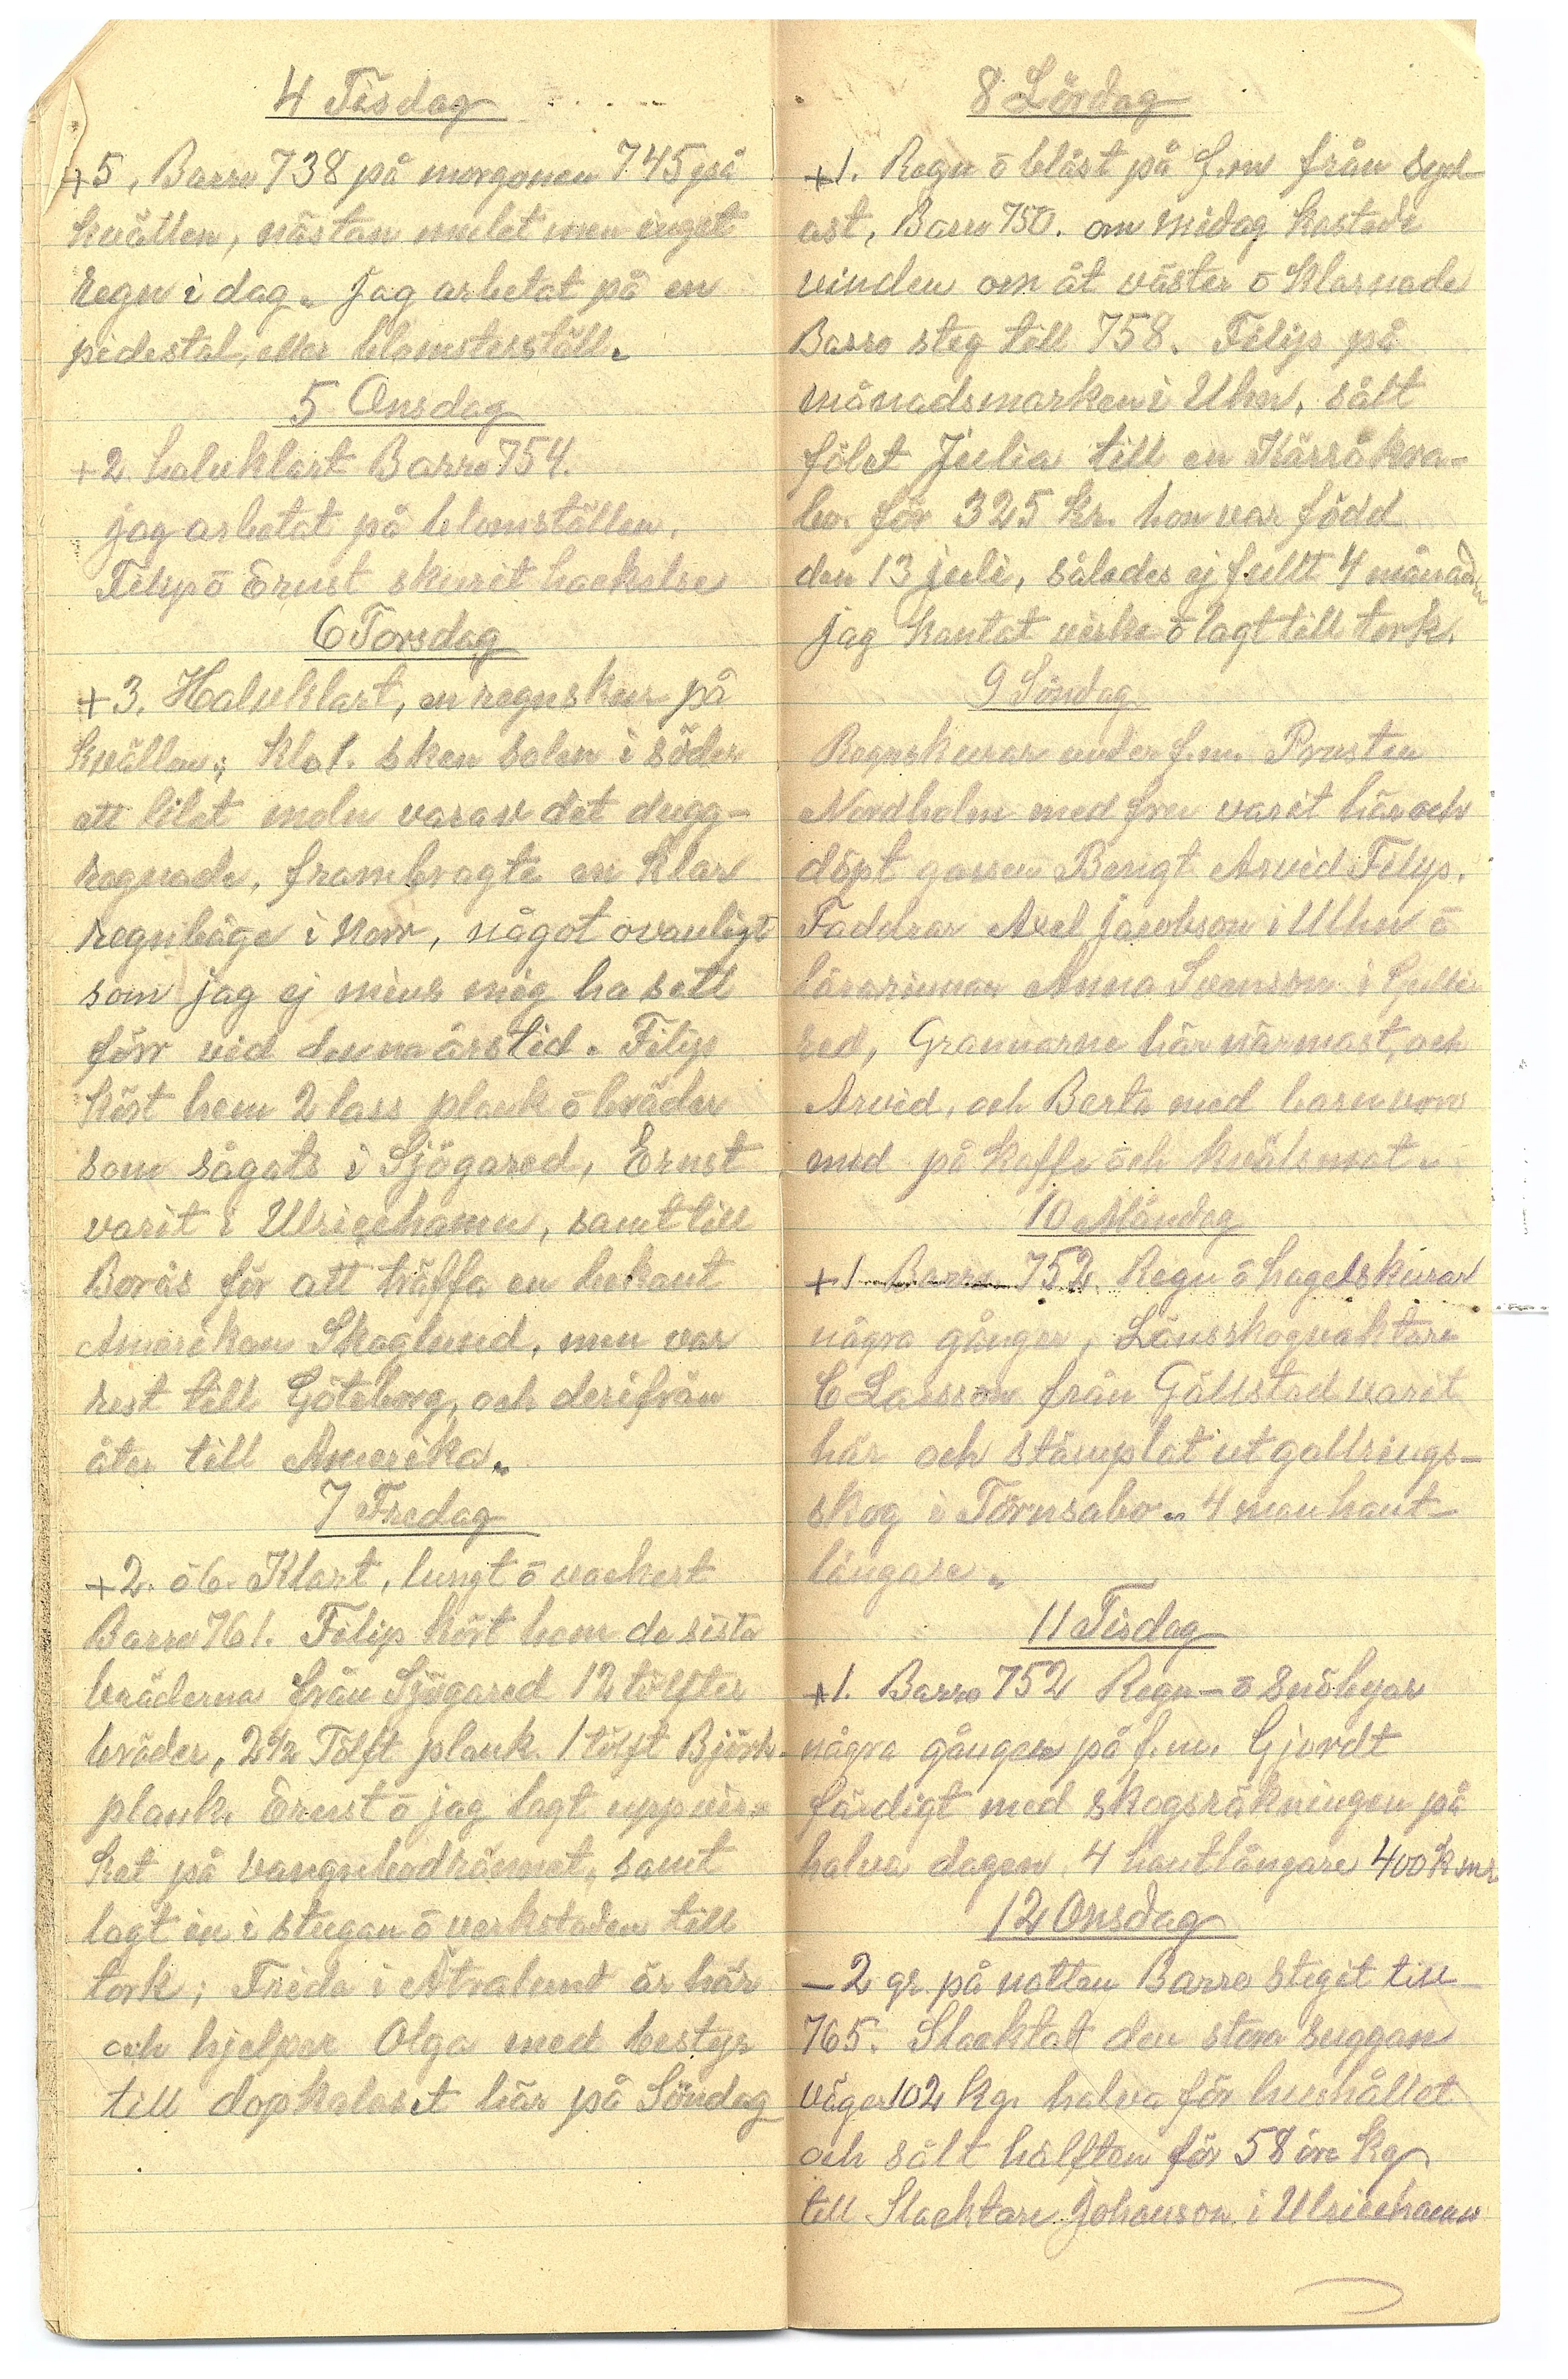 4 Tisdag
+5, Barro 738 på morgonen 745 på
kvällen, nästan mulet men inget
regn i dag. jag arbetat på en
pidestal, eller blomsterställ.
5 Onsdag
+2 halvklart Barro 754.
jag arbetat på blomställen.
Filip ō Ernst skurit hackelse
6 Torsdag
+3. Halvklart, en regnskur på
kvällen; Klo 1. sken solen i söder
ett litet moln varav det dugg-
regnade, frambragte en klar
regnbåge i Norr, något ovanligt
som jag ej mins mig ha sett
förr vid denna årstid. Filip
kört hem 2 lass plank ō bräder
som sågats i Sjögared, Ernst
varit i Ulricehamn, samt till
Borås för att träffa en bekant
Amerikan Skoglund, men var
rest till Göteborg, och derifrån
åter till Amerika.
7 Fredag
+2. ō 6. Klart, lungt ō vackert
Barro 761. Filip kört hem de sista
bräderna från Sjögared 12 tolfter
bräder, 2 1/2 Tolft plank. 1 tolft Björk-
plank. Ernst ō jag lagt upp vir-
ket på vangnbodrännet, samt
lagt in i stugan ō verkstaden till
tork; Frida i Ätralund är här
och hjelper Olga med bestyr
till dopkalaset här på Söndag
8 Lördag
+1. Regn ō blåst på f.m från syd
ost, Barro 750. om Midag kastade
vinden om åt väster o klarnade
Barro steg till 758. Filip på
månadsmarken i Uhn, sålt
fölet Julia till en Kärråkra-
bo. för 325 kr. hon var född
den 13 juli, således ej fullt 4 månader
jag kantat virke ō lagt till tork.
9 Söndag
Regnskurar under f.m. Prosten
Nordholm med fru varit här och
döpt gossen Bengt Arvid Filip.
Faddrar Axel Jacobson i Uhn ō
lärarinnan Anna Svenson i Gulle
red, Grannarne här närmast, och
Arvid, och Berta med barn voro
med på kaffe och kvälsmat.
10 Måndag
+1 Barro 752 Regn ō hagelskurar
några gånger, Länsskogvaktare
C Larsson från Gällstad varit
här och stämplat ut gallrings-
skog i Törnsabo. 4 man hant-
långare.
11 Tisdag
+1. Barro 752 Regn- ō snöbyar
några gånger på f.m. Gjordt
färdigt med skogsräkningen på
halva dagen 4 hantlångare 400 k
12 Onsdag
-2 gr. på natten Barro stigit till
765. Slacktat den stora suggan
väger 102 kg. halva för hushållet
och sålt hälften för 58 öre kg
till Slacktare Johanson i Ulricehamn